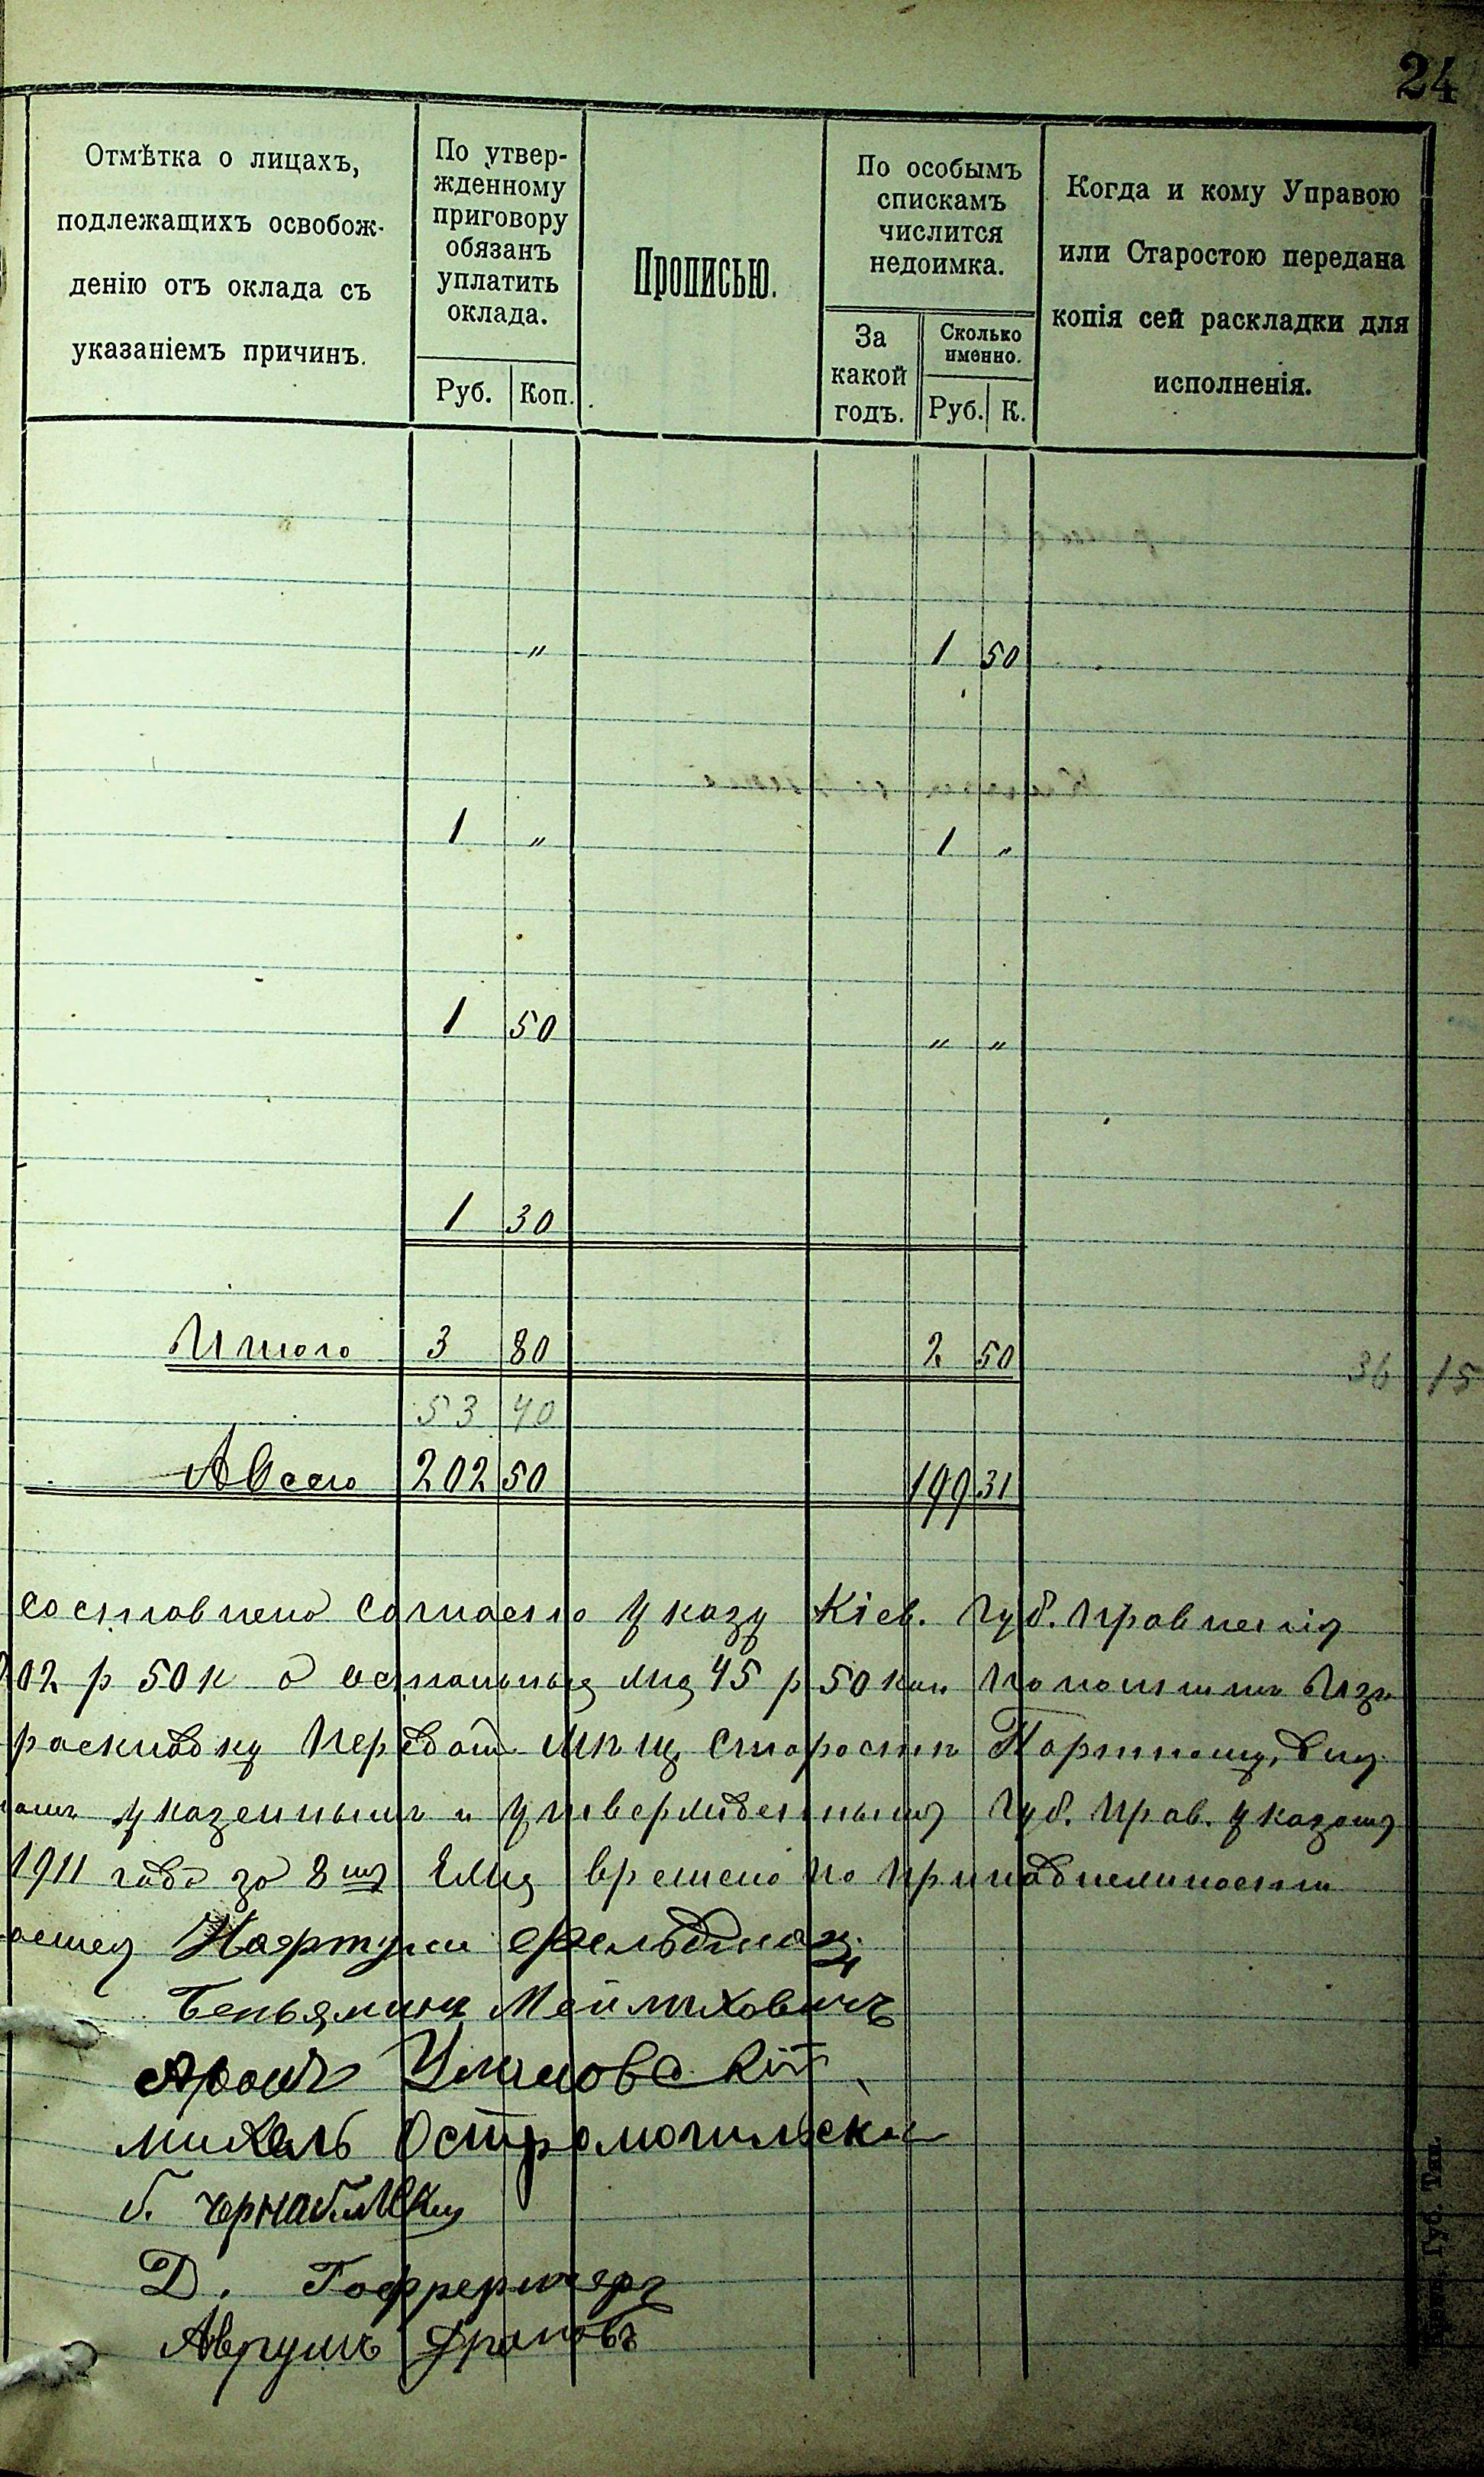 24
Отмѣтка о лицахъ,
подлежащихъ освобож-
денію отъ оклада съ
указаніемъ причинъ.
По утвер-
жденному
приговору
обязанъ
уплатить
оклада.
Руб. Коп.
Прописью.
По особымъ
спискамъ
числится
недоимка.
За
какой
годъ.
Сколько
именно.
Руб. К.
Когда и кому Управою
или Старостою передана
копія сей раскладки для
исполненія.
" 1 50
1 " 1 "
1 50 " "
1 30
Итого 3 80 2 50
36 15
53 40
А всего 202 50 199 31
составлена согласно указу Кіев. Губ. Правленія
202 р 50 к а остальныя 45 р 50 коп
раскладку передать мѣщ старостѣ
указеннымъ и утвержденнымъ Губ. Прав. указомъ
1911 года за 8 времено по принадлежности
Фельдман
Беньяминъ Мейлиховичъ
Аронъ Умановскій
Михель Остромогильски
Д.
Аврумъ
Губ. Тип.